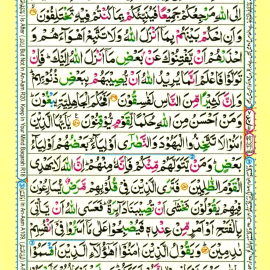 اِلَى اللّٰهِ مَرْجِعُكُمْ جَمِيْعًا فَيُنَبِّئُكُمْ بِمَا كُنْتُمْ فِيْهِ تَخْتَلِفُوْنَ
وَاَنِ احْكُمْ بَيْنَهُمْ بِمَآ اَنْزَلَ اللّٰهُ وَلَا تَتَّبِعْ اَهْوَآءَهُمْ وَ
احْذَرْهُمْ اَنْ يَّفْتِنُوْكَ عَنْۢ بَعْضِ مَآ اَنْزَلَ اللّٰهُ اِلَيْكَ فَاِنْ
تَوَلَّوْا فَاعْلَمْ اَنَّمَا يُرِيْدُ اللّٰهُ اَنْ يُّصِيْبَهُمْ بِبَعْضِ ذُنُوْبِهِمْ
وَاِنَّ كَثِيْرًا مِّنَ النَّاسِ لَفٰسِقُوْنَ اَفَحُكْمَ الْجَاهِلِيَّةِ يَبْغُوْنَ
وَمَنْ اَحْسَنُ مِنَ اللّٰهِ حُكْمًا لِّقَوْمٍ يُّوْقِنُوْنَ يٰٓاَيُّهَا الَّذِيْنَ
اٰمَنُوْا لَا تَتَّخِذُوا الْيَهُوْدَ وَالنَّصٰرٰٓى اَوْلِيَآءَ بَعْضُهُمْ اَوْلِيَآءُ
بَعْضٍ وَمَنْ يَّتَوَلَّهُمْ مِّنْكُمْ فَاِنَّهٗ مِنْهُمْ اِنَّ اللّٰهَ لَا يَهْدِى
الْقَوْمَ الظّٰلِمِيْنَ فَتَرَى الَّذِيْنَ فِيْ قُلُوْبِهِمْ مَّرَضٌ يُّسَارِعُوْنَ
فِيْهِمْ يَقُوْلُوْنَ نَخْشٰٓى اَنْ تُصِيْبَنَا دَآئِرَةٌ فَعَسَى اللّٰهُ اَنْ يَّاْتِيَ
بِالْفَتْحِ اَوْ اَمْرٍ مِّنْ عِنْدِهٖ فَيُصْبِحُوْا عَلٰى مَآ اَسَرُّوْا فِيْٓ اَنْفُسِهِمْ
نٰدِمِيْنَ وَيَقُوْلُ الَّذِيْنَ اٰمَنُوْٓا اَهٰٓؤُلَآءِ الَّذِيْنَ اَقْسَمُوْا